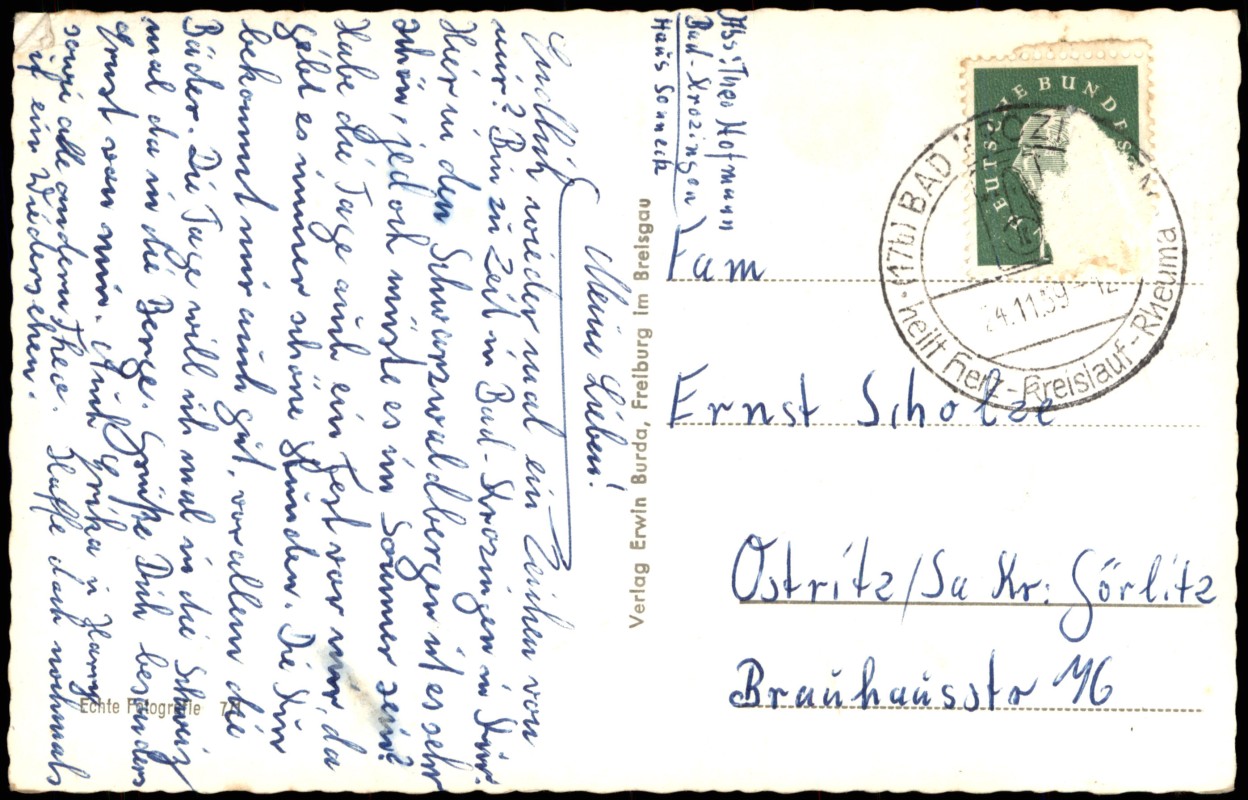 Meine Lieben!
Endlich wieder mal ein Zeichen von
mir? Bin zu Zeit in Bad-Krozingen in Kur.
Hier in den Schwarzwaldbergen ist es sehr
schön, jedoch müste es im Sommer sein?
Habe die Tage auch ein Fest vor mir, da
gebt es immer schöne Stunden. Die Kur
bekommt mir auch gut, vorallem die
Bäder. Die Tage will ich mal in die Schweiz
mal da in die Berge. Grüße Dich besonders
Ernst von mir. Auch Erika u Harry
sowie alle andern Theo. Hoffe doch nochmals
auf ein Wiedersehen.
Echte Fotografie
Verlag Erwin Burda, Freiburg im Breisgau
Abs: Theo Hofmann
Bad-Krozingen
Haus Sonneck
DEUTSCHE BUNDES
(17b) BAD KROZINGEN
24.11.59-12
heilt Herz-Kreislauf-Rheuma
Fam
Ernst Scholze
Ostritz/Sa Kr: Görlitz
Brauhausstr 16